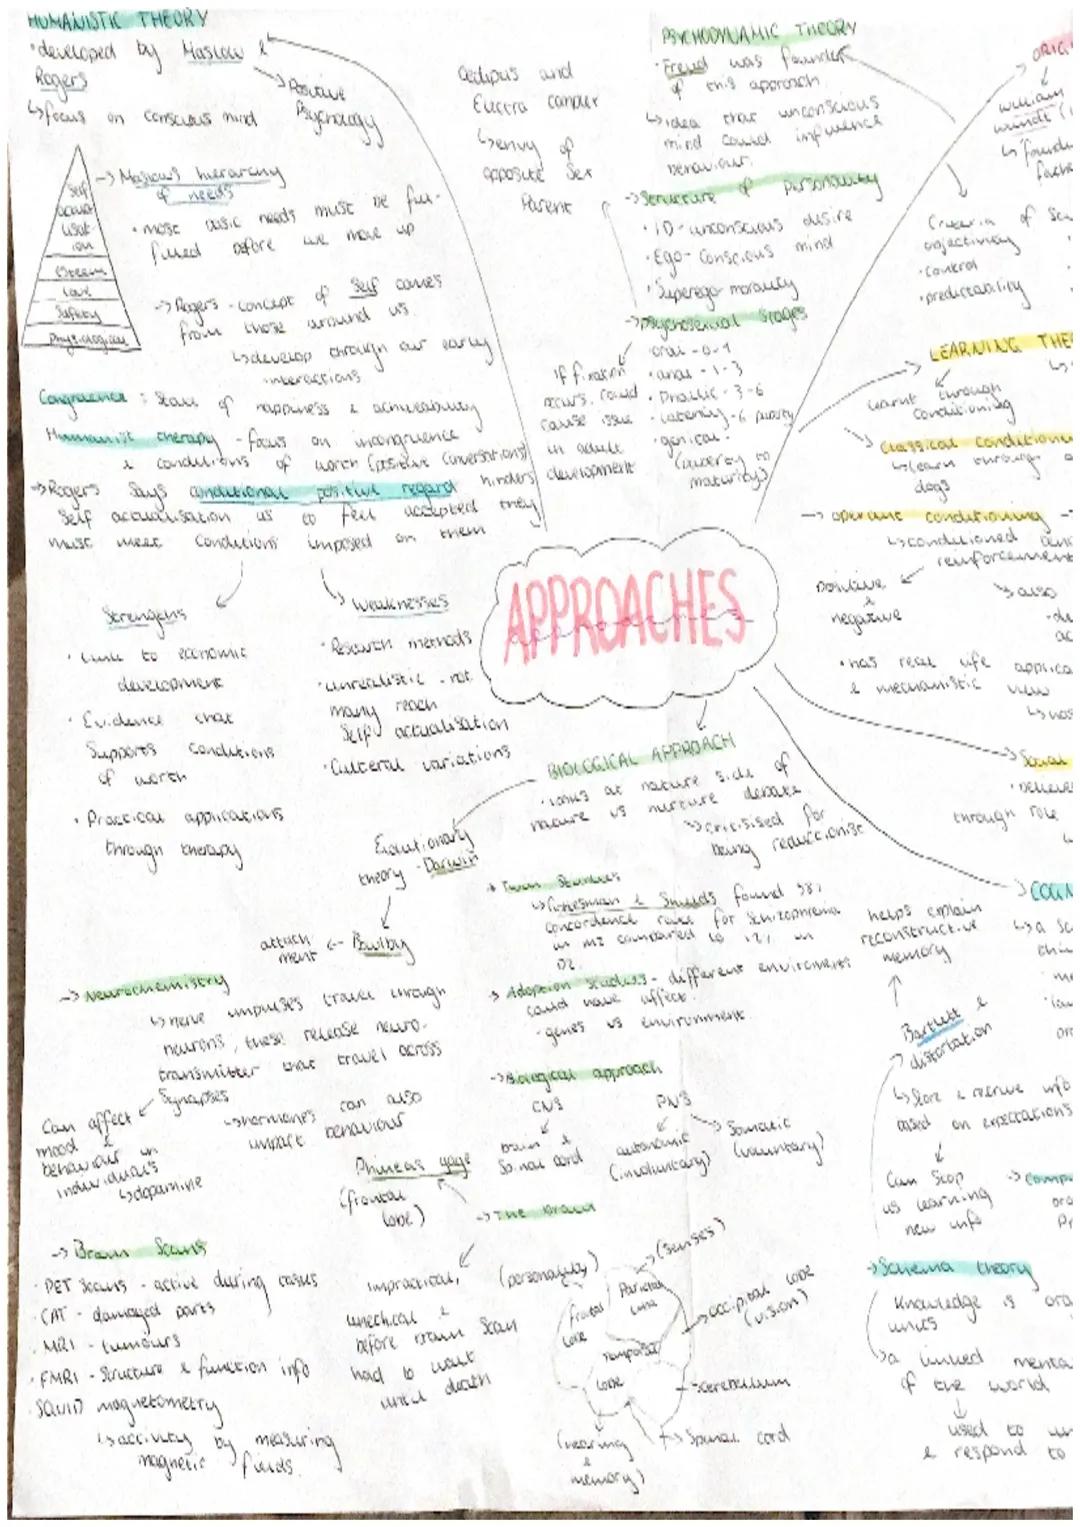 HUMANISTIC THEORY
• developed by Maslow &
Rogers
↳ focus on conscious mind
→ Positive
Psychology
Self
actual-
isat-
ion
Esteem
Love
Safety
Physiological
→ Maslows hierarchy
of needs
• most basic needs must be ful-
filled before we move up
→ Rogers - concept of Self comes
from those around us
↳ develop through our early
interactions
Congruence : State of happiness & achievability
Humanist therapy - focus on incongruence
& conditions of worth (positive conversations)
→ Rogers says conditional positive regard hinders
Self actualisation as to feel accepted they
must meet conditions imposed on them
Strengths
• Link to economic
development
• Evidence that
Supports conditions
of worth
• Practical applications
through therapy
Weaknesses
• Research methods
• unrealistic - not
many reach
Self actualisation
• Cultural variations
Oedipus and
Electra complex
↳ envy of
opposite Sex
Parent
PSYCHODYNAMIC THEORY
• Freud was founder
of this approach
↳ idea that unconscious
mind could influence
behaviour.
→ Structure of personality
• ID - unconscious desire
• Ego - Conscious mind
• Superego - morality
→ Psychosexual Stages
• oral - 0-1
• anal - 1-3
• Phallic - 3-6
• Latency - 6 puberty
• genital -
(puberty to
maturity)
If fixation
occurs, could
cause issue
in adult
development
ORIG
William
Wundt (
↳ founde
fathe
Criteria of Sci
objectivity
• control
• predictability
LEARNING THEO
learnt through
conditioning
Classical conditioning
↳ learn through a
dogs
→ operant conditioning -
↳ conditioned
reinforcement
positive
&
negative
↳ also
• has real life applica
& mechanistic view
↳ has
Social
• believe
through role
APPROACHES
BIOLOGICAL APPROACH
• looks at nature side of
nature vs nurture debate
↳ criticised for
being reductionist
Evolutionary
theory - Darwin
attach
ment ← Bowlby
→ Twin Studies
↳ Gottesman & Shields found 58%
concordance rate for Schizophrenia
in MZ compared to 12% in
DZ.
→ Adoption Studies - different enviroments
could have affect.
- genes vs environment
→ Neurochemistry
↳ nerve impulses travel through
neurons, these release neuro-
transmitter that travel across
Synapses
Can affect
mood &
behaviour in
individuals
↳ dopamine
→ hormones can also
impact behaviour
→ Biological approach
CNS
brain &
Spinal cord
PNS
autonomic
(involuntary)
Somatic
(voluntary)
Phineas gage
(frontal
lobe)
→ The brain
impractical,
unethical &
before brain Scan
had to wait
until death
(personality)
frontal
lobe
Parietal
Lobe
→ (senses)
→ occipital lobe
(vision)
temporal
lobe
→ cerebellum
→ Spinal cord
(hearing
&
memory)
→ Brain Scans
• PET Scans - active during tasks
• CAT - damaged parts
• MRI - tumours
• FMRI - Structure & function info
• SQUID magnetometry
↳ activity by measuring
magnetic fields.
COGN
helps explain
reconstructive
memory
Bartlett &
distortation
↳ Store & retrieve info
based on expectations
Can Stop
us learning
new info
→ Compu
→ Schema theory
Knowledge is
units
↳ a linked menta
of the world
used to
& respond to